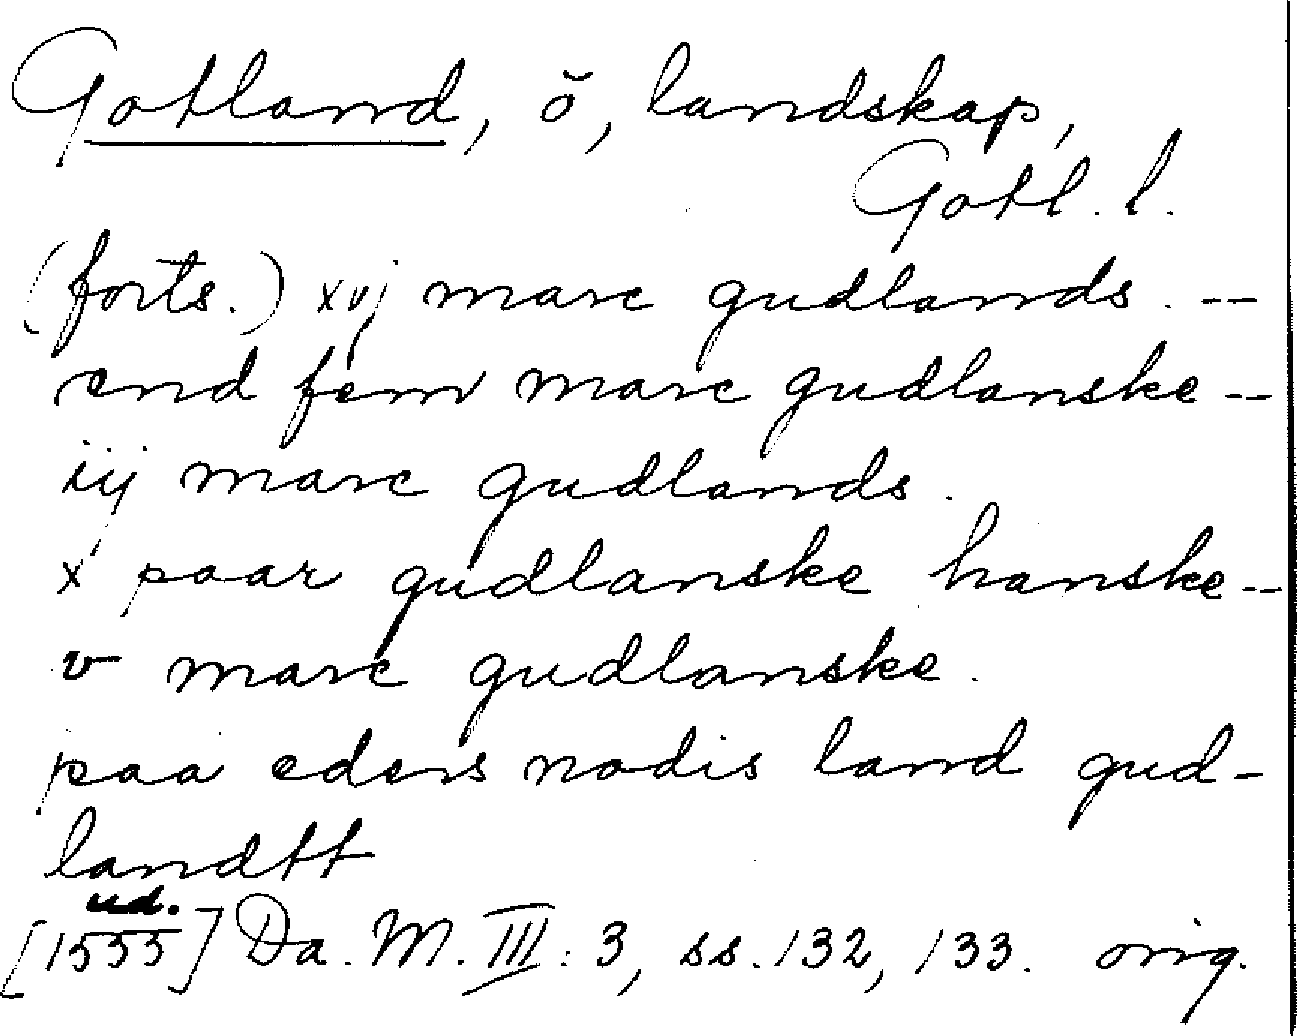 Gotland, ö, landskap,
Gotl. l.
(forts.) xvj marc gudlands. --
end fem marc gudlanske --
iij marc gudlands.
x paar gudlanske hanske --
v marc gudlanske.
paa eders nadis land gud-
landtt
ud.
[1555] Da. M. III: 3, ss. 132, 133. orig.